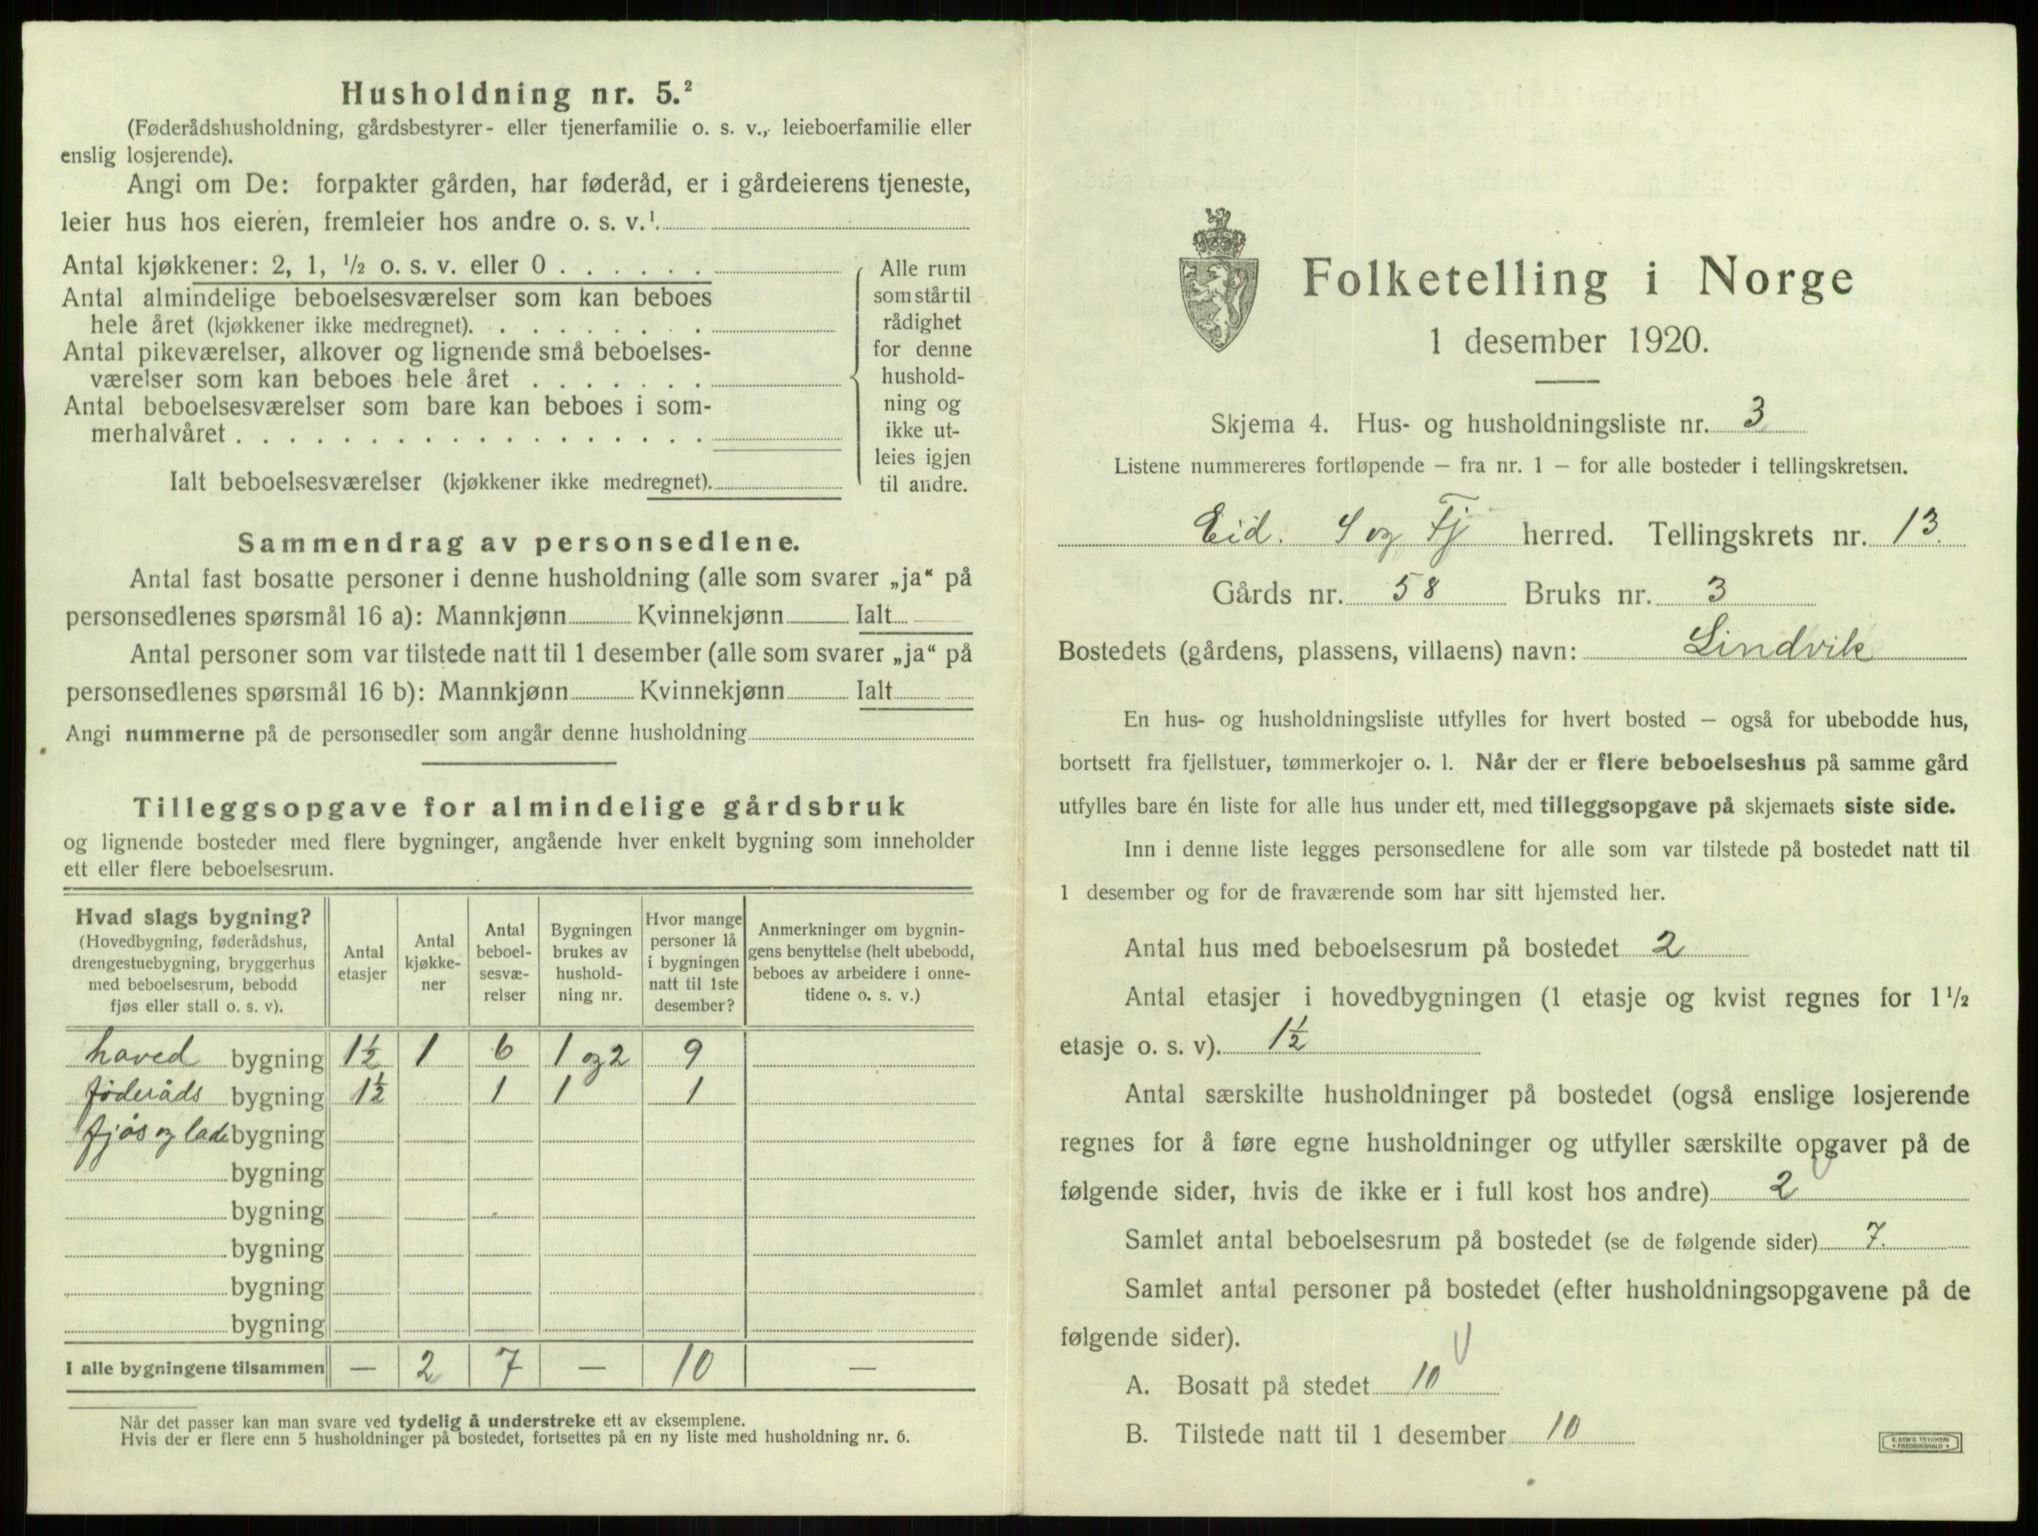 Husholdning nr. 5.²
(Føderådshusholdning, gårdsbestyrer- eller tjenerfamilie o. s. v., leieboerfamilie eller
enslig losjerende).
Angi om De: forpakter gården, har føderåd, er i gårdeierens tjeneste,
leier hus hos eieren, fremleier hos andre o. s. v.¹
Antal kjøkkener: 2, 1, ½ o. s. v. eller 0 . . . . . .
Antal almindelige beboelsesværelser som kan beboes
hele året (kjøkkener ikke medregnet). . . . . . . . .
Antal pikeværelser, alkover og lignende små beboelses-
værelser som kan beboes hele året . . . . . . .
Antal beboelsesværelser som bare kan beboes i som-
merhalvåret . . . . . . . . . . . . . . . . . .
Ialt beboelsesværelser (kjøkkener ikke medregnet).
Alle rum
som står til
rådighet
for denne
hushold-
ning og
ikke ut-
leies igjen
til andre.
Sammendrag av personsedlene.
Antal fast bosatte personer i denne husholdning (alle som svarer „ja“ på
personsedlenes spørsmål 16 a): Mannkjønn Kvinnekjønn Ialt
Antal personer som var tilstede natt til 1 desember (alle som svarer „ja“ på
personsedlenes spørsmål 16 b): Mannkjønn Kvinnekjønn Ialt
Angi nummerne på de personsedler som angår denne husholdning
Tilleggsopgave for almindelige gårdsbruk
og lignende bosteder med flere bygninger, angående hver enkelt bygning som inneholder
ett eller flere beboelsesrum.
Hvad slags bygning?
(Hovedbygning, føderådshus,
drengestuebygning, bryggerhus
med beboelsesrum, bebodd
fjøs eller stall o. s. v).
Antal
etasjer
Antal
kjøkke-
ner
Antal
beboel-
sesvæ-
relser
Bygningen
brukes av
hushold-
ning nr.
Hvor mange
personer lå
i bygningen
natt til 1ste
desember?
Anmerkninger om bygnin-
gens benyttelse (helt ubebodd,
beboes av arbeidere i onne-
tidene o. s. v.)
hoved bygning 1½ 1 6 1 og 2 9
føderåds bygning 1½ 1 1 1
fjøs og lade bygning
bygning
bygning
bygning
bygning
bygning
I alle bygningene tilsammen — 2 7 — 10 —
Når det passer kan man svare ved tydelig å understreke ett av eksemplene.
Hvis der er flere enn 5 husholdninger på bostedet, fortsettes på en ny liste med husholdning nr. 6.
Folketelling i Norge
1 desember 1920.
Skjema 4. Hus- og husholdningsliste nr. 3
Listene nummereres fortløpende – fra nr. 1 – for alle bosteder i tellingskretsen.
Eid. S og Fj herred. Tellingskrets nr. 13.
Gårds nr. 58 Bruks nr. 3
Bostedets (gårdens, plassens, villaens) navn: Lindvik
En hus- og husholdningsliste utfylles for hvert bosted – også for ubebodde hus,
bortsett fra fjellstuer, tømmerkojer o. l. Når der er flere beboelseshus på samme gård
utfylles bare én liste for alle hus under ett, med tilleggsopgave på skjemaets siste side.
Inn i denne liste legges personsedlene for alle som var tilstede på bostedet natt til
1 desember og for de fraværende som har sitt hjemsted her.
Antal hus med beboelsesrum på bostedet 2
Antal etasjer i hovedbygningen (1 etasje og kvist regnes for 1½
etasje o. s. v). 1½
Antal særskilte husholdninger på bostedet (også enslige losjerende
regnes for å føre egne husholdninger og utfyller særskilte opgaver på de
følgende sider, hvis de ikke er i full kost hos andre) 2
Samlet antal beboelsesrum på bostedet (se de følgende sider) 7.
Samlet antal personer på bostedet (efter husholdningsopgavene på de
følgende sider).
A. Bosatt på stedet 10
B. Tilstede natt til 1 desember 10
E. SEM'S TRYKKERI
• FREDRIKSHALD •